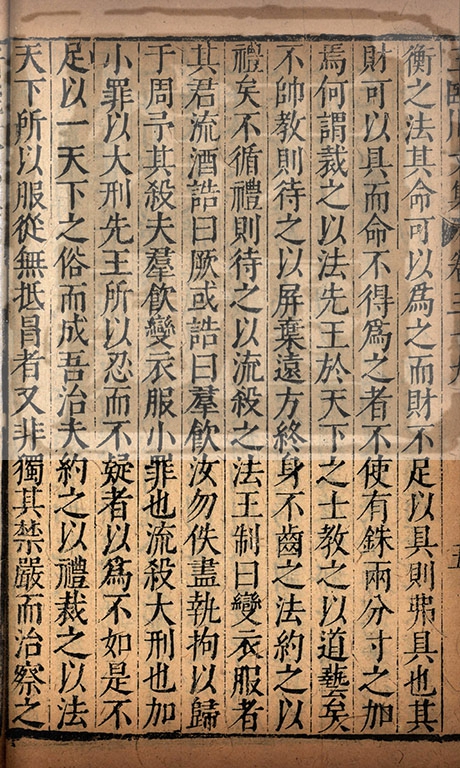 王臨川文集
卷三十九
五
衡之法其命可以爲之而財不足以具則弗具也其
財可以具而命不得爲之者不使有銖兩分寸之加
焉何謂裁之以法先王於天下之士教之以道藝矣
不帥教則待之以屏棄遠方終身不齒之法約之以
禮矣不循禮則待之以流殺之法王制曰變衣服者
其君流酒誥曰厥或誥曰羣飲汝勿佚盡執拘以歸
于周予其殺夫羣飲變衣服小罪也流殺大刑也加
小罪以大刑先王所以忍而不疑者以爲不如是不
足以一天下之俗而成吾治夫約之以禮裁之以法
天下所以服從無抵冒者又非獨其禁嚴而治察之